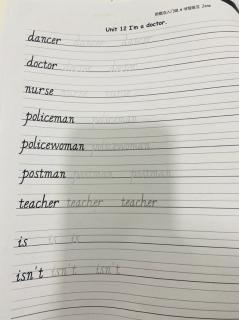 Unit 12 I'm a doctor.
dancer dancer dancer
doctor doctor doctor
nurse nurse nurse
policeman policeman
policewoman policewoman
postman postman postman
teacher teacher teacher
is is is
isn't isn't isn't